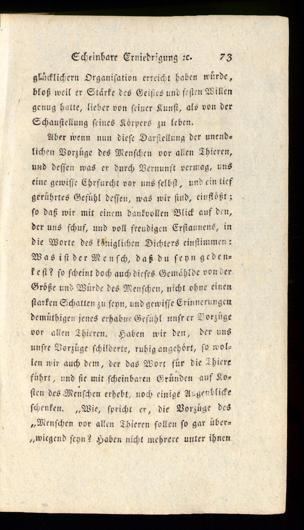 Scheinbare Erniedrigung ꝛc. 73
glücklichern Organisation erreicht haben würde,
bloß weil er Stärke des Geistes und festen Willen
genug hatte, lieber von seiner Kunst, als von der
Schaustellung seines Körpers zu leben.
Aber wenn nun diese Darstellung der unend-
lichen Vorzüge des Menschen vor allen Thieren,
und dessen was er durch Vernunft vermag, uns
eine gewisse Ehrfurcht vor uns selbst, und ein tief
gerührtes Gefühl dessen, was wir sind, einflößt;
so daß wir mit einem dankvollen Blick auf den,
der uns schuf, und voll freudigen Erstaunens, in
die Worte des königlichen Dichters einstimmen:
Was ist der Mensch, daß du seyn geden-
kest? so scheint doch auch dieses Gemählde von der
Größe und Würde des Menschen, nicht ohne einen
starken Schatten zu seyn, und gewisse Erinnerungen
demüthigen jenes erhabne Gefühl unsrer Vorzüge
vor allen Thieren. Haben wir den, der uns
unsre Vorzüge schilderte, ruhig angehört, so wol-
len wir auch dem, der das Wort für die Thiere
führt, und sie mit scheinbaren Gründen auf Ko-
sten des Menschen erhebt, noch einige Augenblicke
schenken. „Wie, spricht er, die Vorzüge des
„Menschen vor allen Thieren sollen so gar über-
„wiegend seyn? Haben nicht mehrere unter ihnen